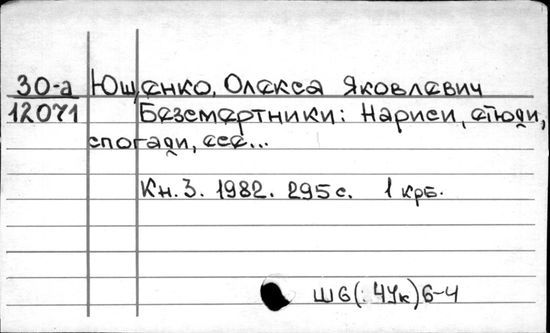 30-а Ющенко, Олекса Яковлевич
12071 Безсмертники: Нариси, етюди,
спогади, есе...
Кн. 3. 1982. 295 с. 1 крб.
Ш6(:4Ук)6-4